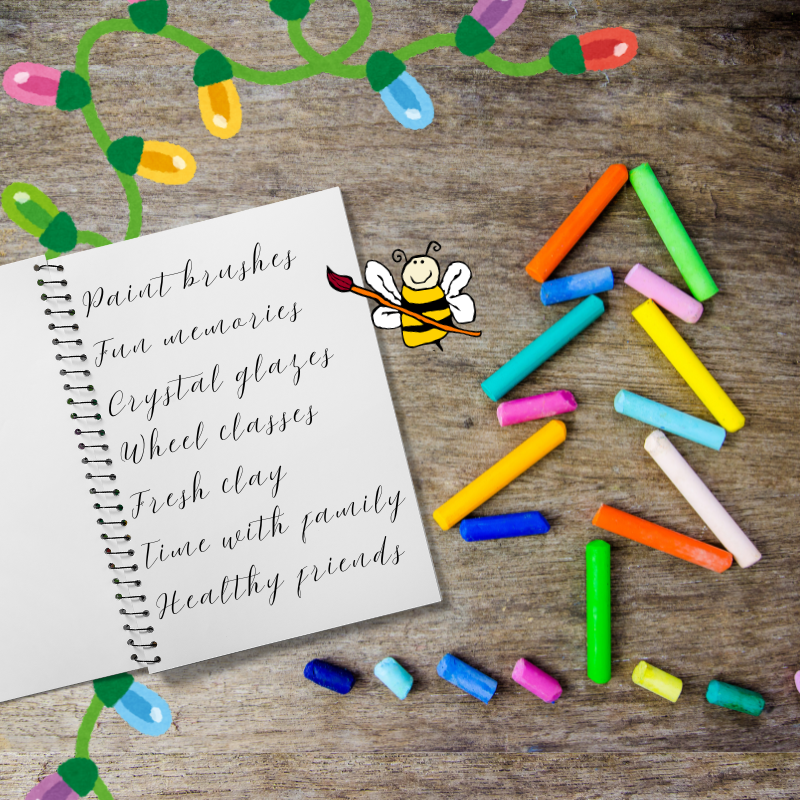 Paint brushes
Fun memories
Crystal glazes
Wheel classes
Fresh clay
Time with family
Healthy friends